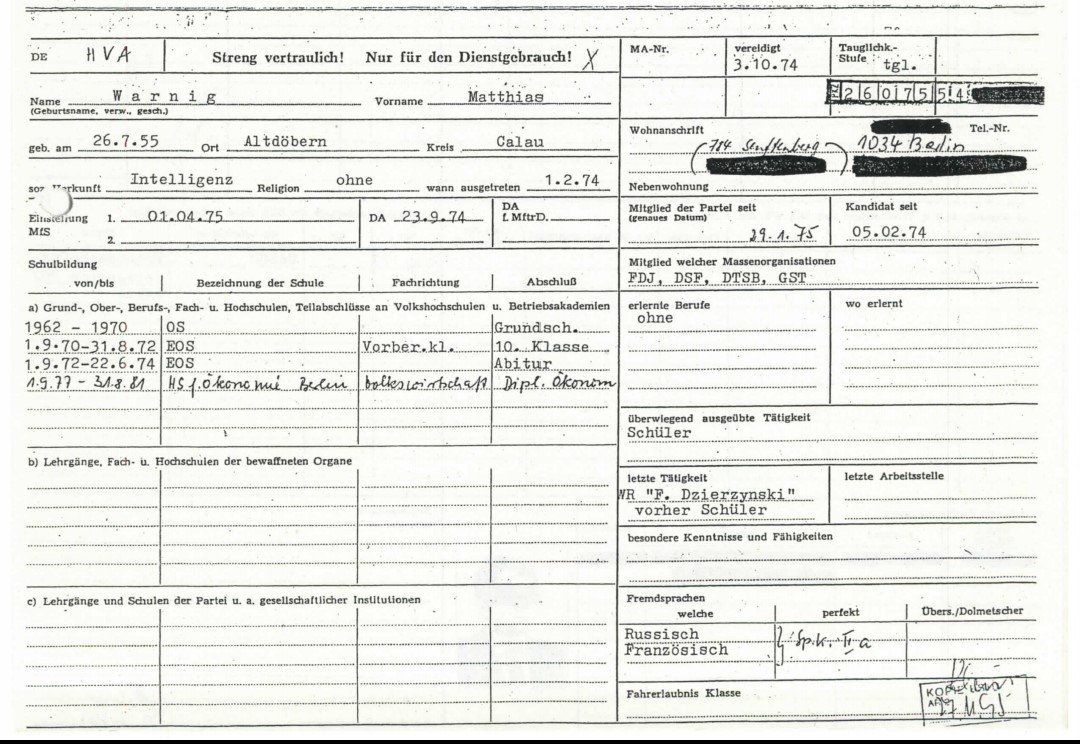 DE HVA Streng vertraulich! Nur für den Dienstgebrauch! X
Name Warnig Vorname Matthias
(Geburtsname, verw., gesch.)
geb. am 26.7.55 Ort Altdöbern Kreis Calau
Intelligenz Religion ohne wann ausgetreten 1.2.74
Einstellung 1. 01.04.75 DA 23.9.74 DA
MfS f. MftrD.
2.
Schulbildung
von/bis Bezeichnung der Schule Fachrichtung Abschluß
a) Grund-, Ober-, Berufs-, Fach- u. Hochschulen, Teilabschlüsse an Volkshochschulen u. Betriebsakademien
1962 - 1970 OS Grundsch.
1.9.70-31.8.72 EOS Vorber.kl. 10. Klasse
1.9.72-22.6.74 EOS Abitur
1.9.77 - 31.8.81 HS f. Ökonomie Berlin Volkswirtschaft Dipl. Ökonom
b) Lehrgänge, Fach- u. Hochschulen der bewaffneten Organe
c) Lehrgänge und Schulen der Partei u. a. gesellschaftlicher Institutionen
MA-Nr. vereidigt Tauglichk.-
Stufe
3.10.74 tgl.
PKZ 260755 4
Wohnanschrift Tel.-Nr.
(784 Senftenberg) 1034 Berlin
Nebenwohnung
Mitglied der Partei seit Kandidat seit
(genaues Datum)
29.1.75 05.02.74
Mitglied welcher Massenorganisationen
FDJ, DSF, DTSB, GST
erlernte Berufe wo erlernt
ohne
überwiegend ausgeübte Tätigkeit
Schüler
letzte Tätigkeit letzte Arbeitsstelle
WR "F. Dzierzynski"
vorher Schüler
besondere Kenntnisse und Fähigkeiten
Fremdsprachen
welche perfekt Übers./Dolmetscher
Russisch
Französisch } Sp.k. II a
Fahrerlaubnis Klasse